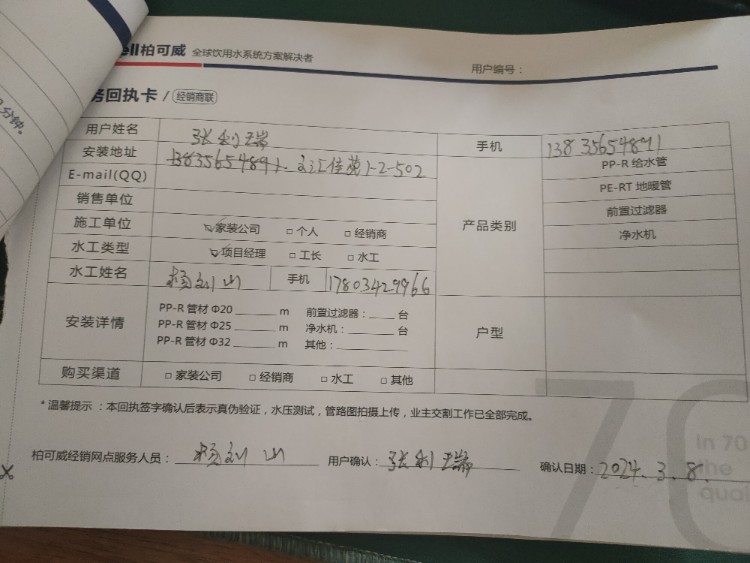 ell柏可威 全球饮用水系统方案解决者
用户编号：
务回执卡 / 经销商联
用户姓名 张利瑞 手机 13835654891
安装地址 13835654891 汇佳苑1-2-502 产品类别 PP-R 给水管
E-mail(QQ) PE-RT 地暖管
销售单位 前置过滤器
施工单位 ☑家装公司 □个人 □经销商 净水机
水工类型 ☑项目经理 □工长 □水工
水工姓名 杨刘山 手机 17803429966
安装详情 PP-R 管材 Φ20 m 前置过滤器： 台 户型
PP-R 管材 Φ25 m 净水机： 台
PP-R 管材 Φ32 m 其他：
购买渠道 □家装公司 □经销商 □水工 □其他
*温馨提示：本回执签字确认后表示真伪验证，水压测试，管路图拍摄上传，业主交割工作已全部完成。
柏可威经销网点服务人员： 杨刘山 用户确认： 张利瑞 确认日期： 2024.3.8.
70
In 70
the
qual
分钟。